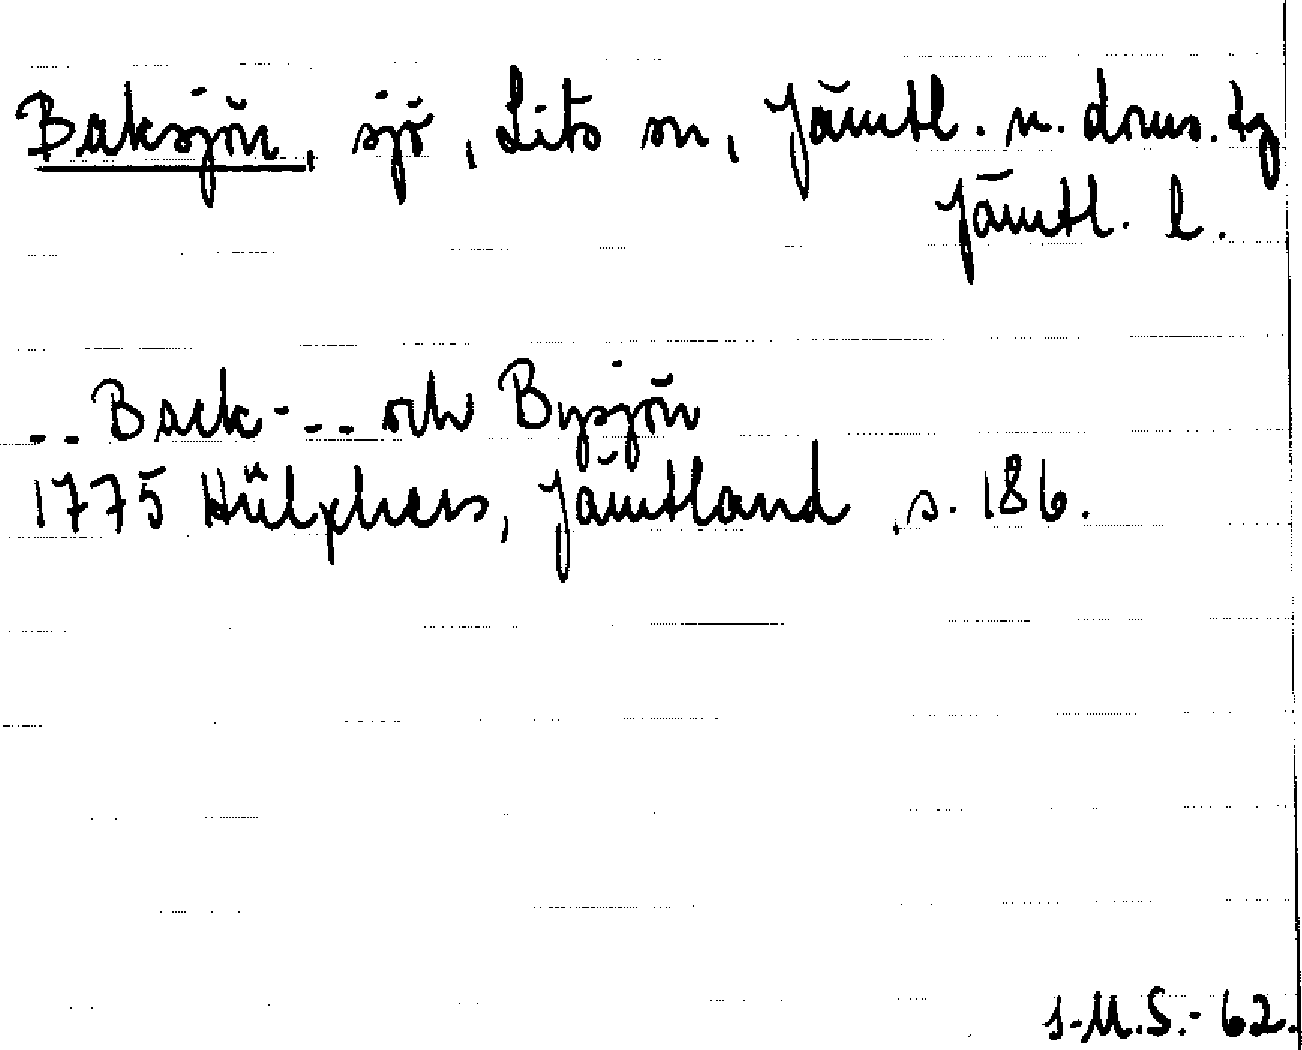 Baksjön, sjö, Lits sn, Jämtl. n. doms. tg
Jämtl. l.
-- Back- -- och Bysjön
1775 Hülphers, Jämtland, s. 186.
J.M.S.-62.